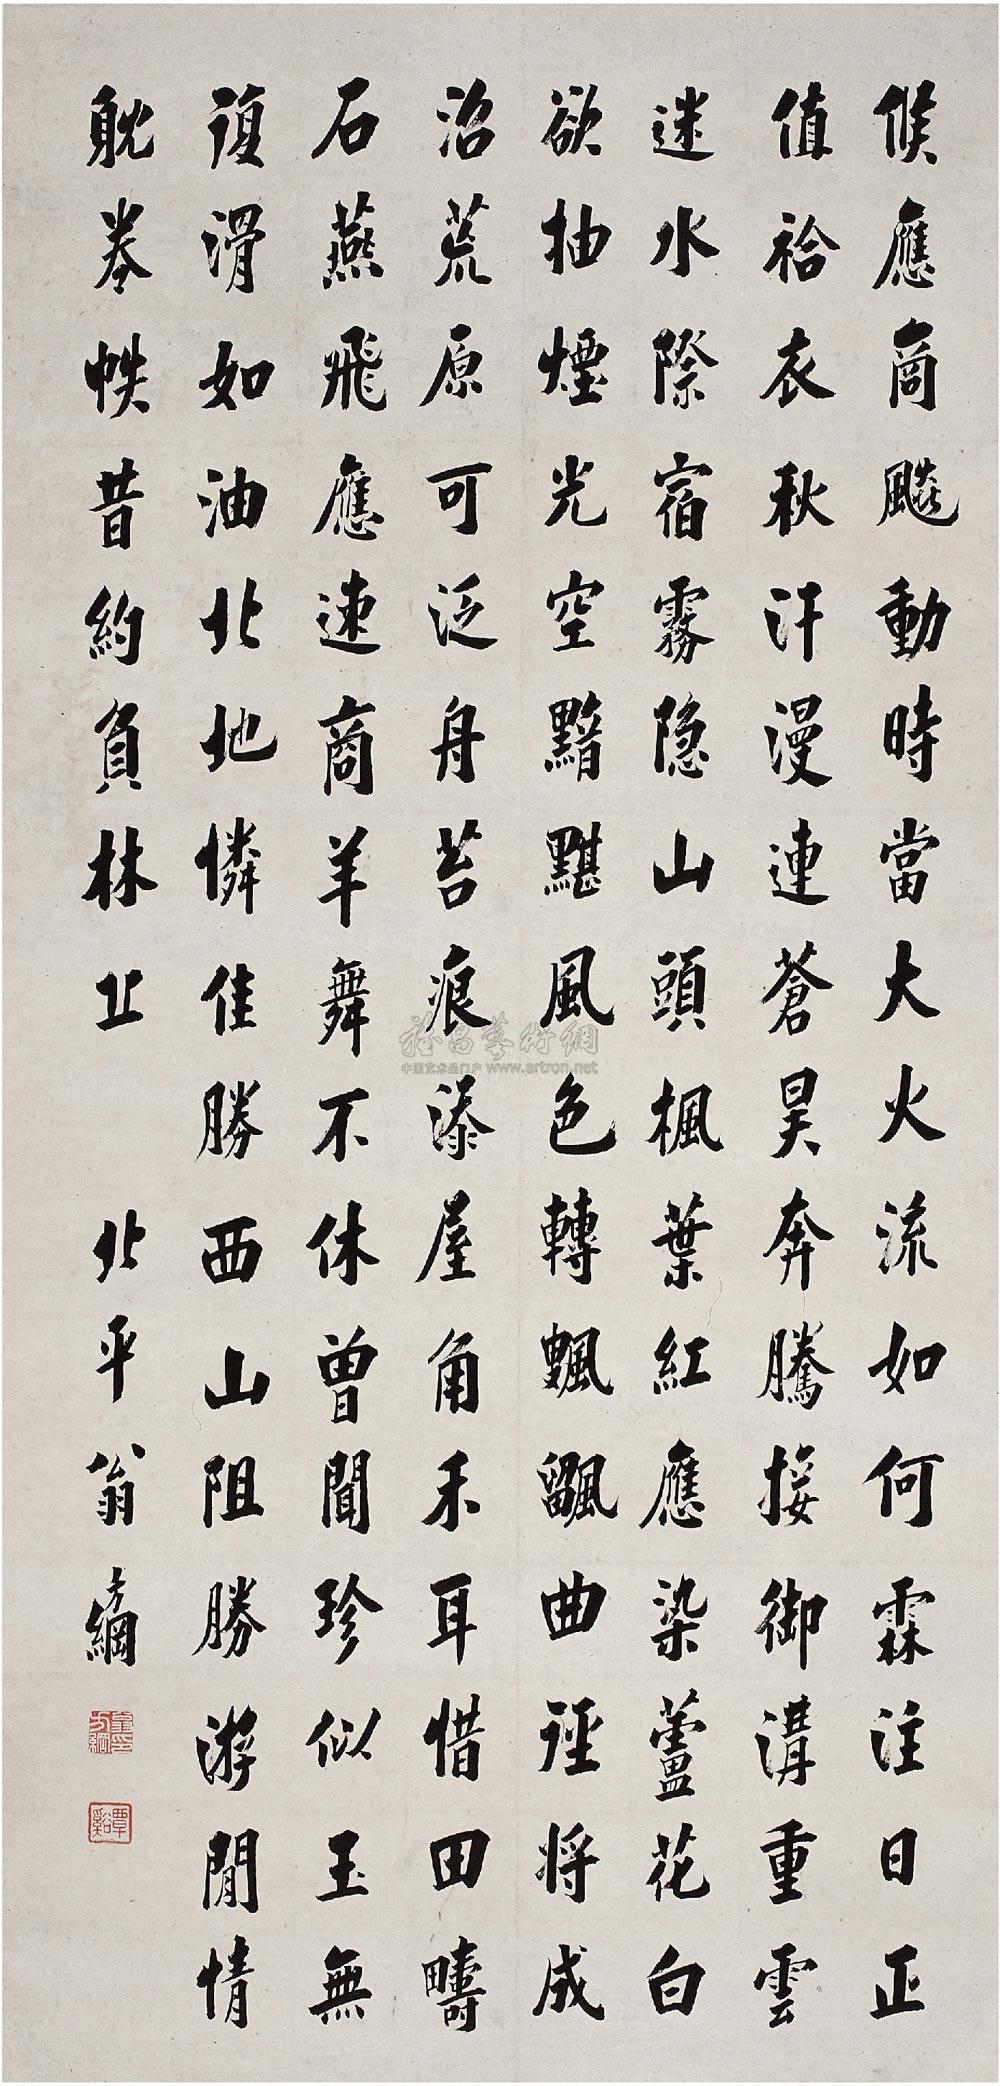 候應商飈動時當大火流如何霖注日正
值袷衣秋汗漫連蒼昊奔騰接御溝重雲
迷水際宿霧隐山頭楓葉紅應染蘆花白
欲抽煙光空黯黮風色轉颼飀曲徑將成
沼荒原可泛舟苔痕滲屋角禾耳惜田疇
石燕飛應速商羊舞不休曾聞珍似玉無
復滑如油北地憐佳勝西山阻勝游閒情
躭卷帙昔約負林丘 北平翁方綱
翁方綱印
覃谿
雅昌藝術網
中国艺术品门户 www.artron.net